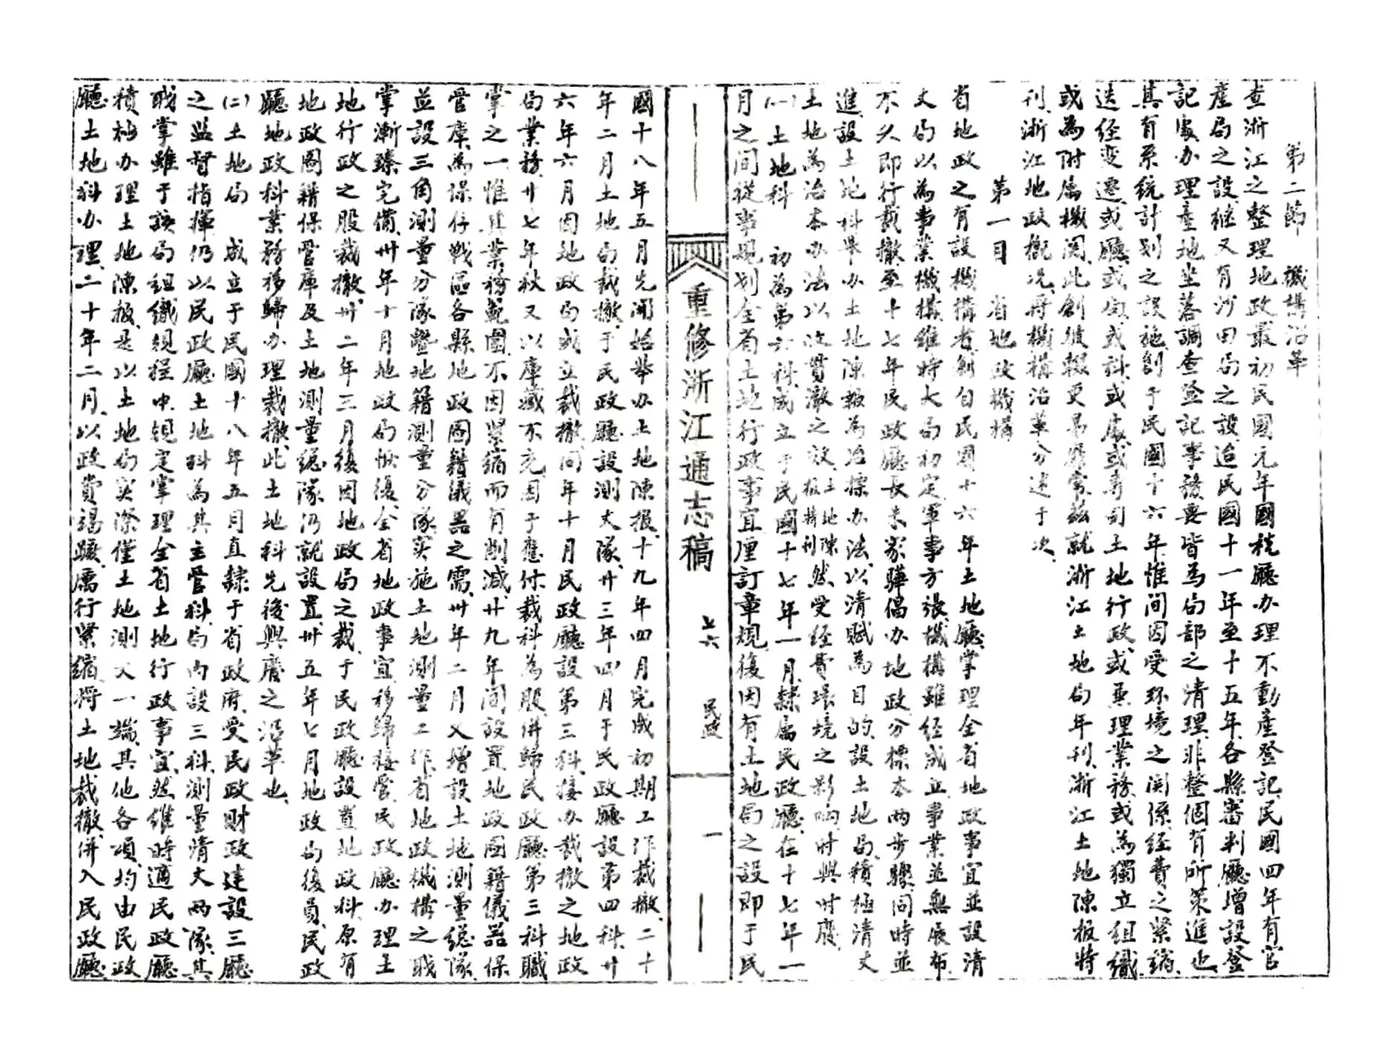 第二節 機構沿革
查浙江之整理地政最初民國元年國稅廳办理不動產登記民國四年有官
產局之設继又有沙田局之設迨民國十一年至十五年各縣審判廳增設登
記處办理產地坐落調查登記事務要皆局部之清理非整個有所策進也
其有系統計划之設施創于民國十六年惟间因受环境之関係經費之緊縮
迭經变遷或廳或局或科或處或專司土地行政或兼理業務或為獨立組織
或為附屬機関此創彼輟更易無常茲就浙江土地局年刊浙江土地陳报特
刊浙江地政概况将機構沿革分述于次
第一目 省地政機構
省地政之有設機構者創自民國十六年土地廳掌理全省地政事宜並設清
丈局以為事業機構維時大局初定軍事方张機構雖經成立事業並無展布
不久即行裁撤至十七年民政廳長朱家驊倡办地政分標本两步驟同時並
進設土地科举办土地陳報為治標办法以清賦為目的設土地局積極清丈
土地為治本办法以收貫澈之效土地陳报特刊然受經費环境之影响时興时廢
㈠土地科 初為第六科成立于民國十七年一月隸屬民政廳在十七年一
月之间從事規划全省土地行政事宜厘訂章規復因有土地局之設即于民
重修浙江通志稿 七六 民政 一
國十八年五月先開始举办土地陳报十九年四月完成初期工作裁撤二十
年二月土地局裁撤于民政廳設測丈隊廿三年四月于民政廳設第四科廿
六年六月因地政局成立裁撤同年十月民政廳設第三科接办裁撤之地政
局業務廿七年秋又以库藏不充因于應付裁科為股併歸民政廳第三科職
掌之一惟其業務範圍不因緊縮而有削減廿九年间設置地政圖籍儀器保
管库為保存戰區各縣地政圖籍儀器之需卅年二月又增設土地測量總隊
並設三角測量分隊暨地籍測量分隊实施土地測量工作省地政機構之職
掌漸臻完備卅年十月地政局恢復全省地政事宜移歸接管民政廳办理土
地行政之股裁撤卅二年三月復因地政局之裁于民政廳設置地政科原有
地政圖籍保管库及土地測量總隊仍就設置卅五年七月地政局復員民政
廳地政科業務移歸办理裁撤此土地科先後興廢之沿革也
㈡土地局 成立于民國十八年五月直隸于省政府受民政財政建設三廳
之监督指揮仍以民政廳土地科為其主管科局内設三科測量清丈两隊其
职掌雖于該局組織規程中規定掌理全省土地行政事宜然维時適民政廳
積極办理土地陳报是以土地局实際僅土地測丈一端其他各項均由民政
廳土地科办理二十年二月以政费竭蹶厲行緊縮将土地裁撤併入民政廳